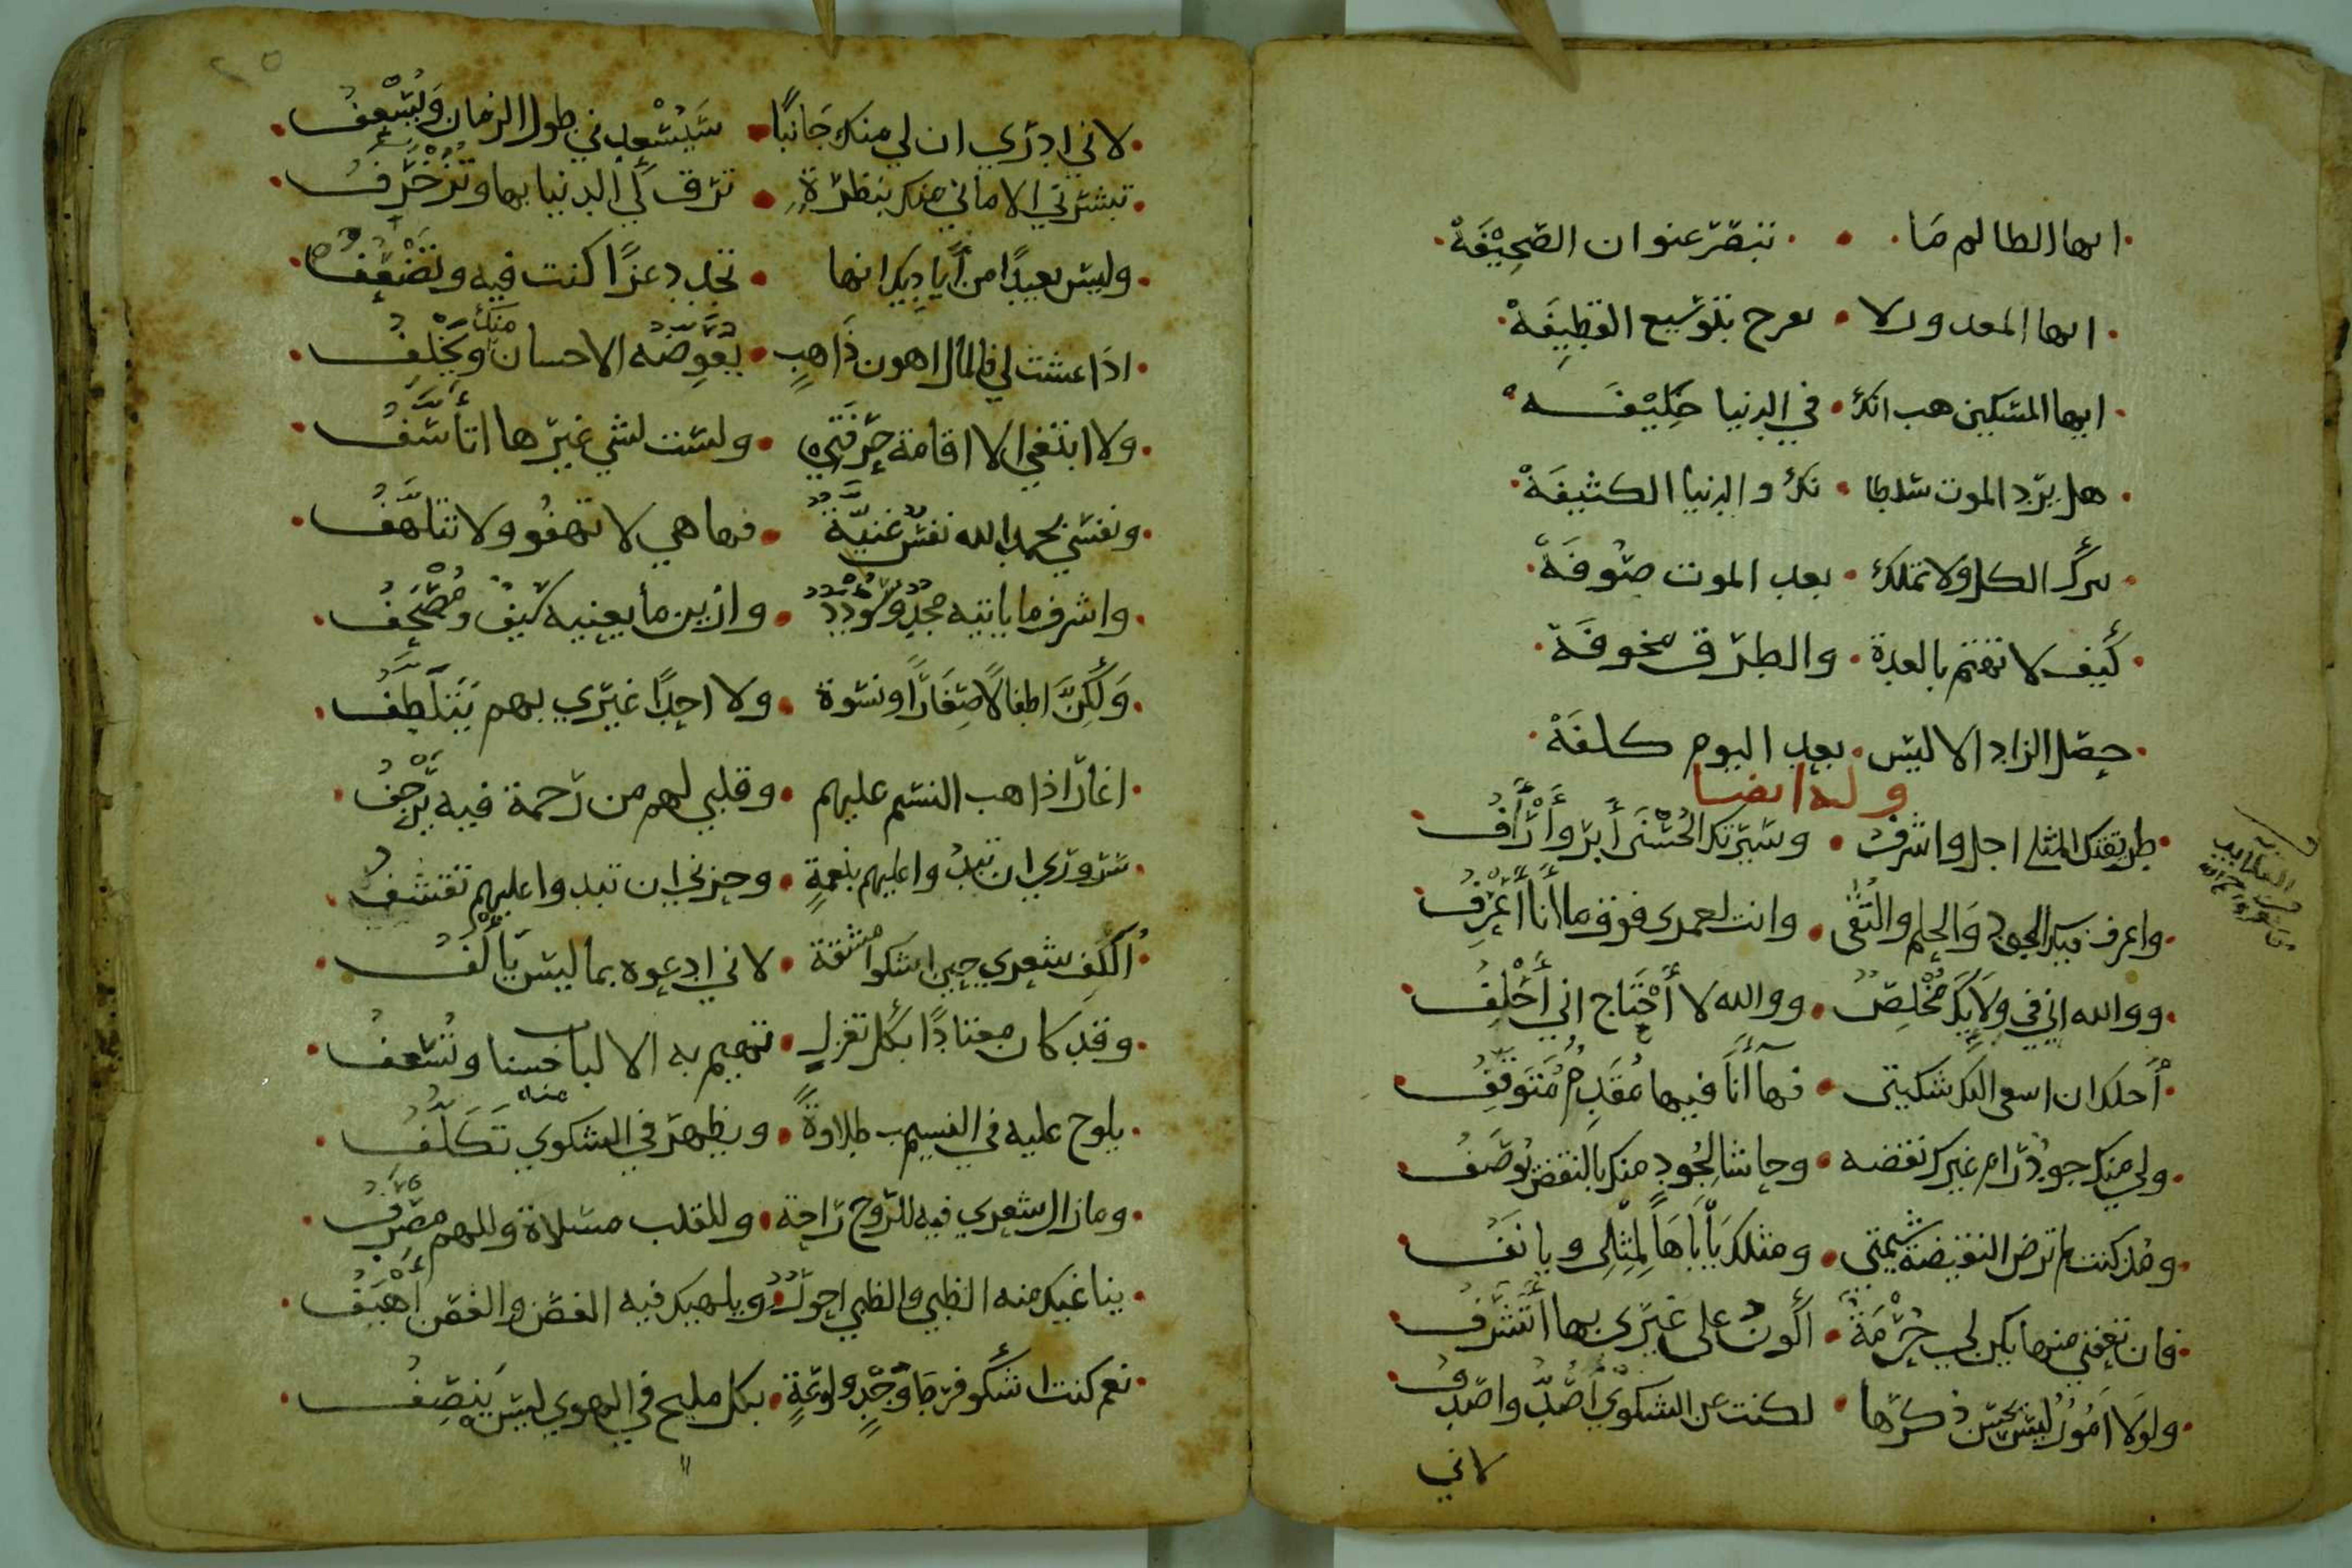 ايها الظالم ما • تبصر عنوان الصحيفة
ايها المغرور لا • تفرح بتوسيع القطيفة
ايها المسكين هب انك • في الدنيا خليفة
هل يرد الموت سلطا • نك والدنيا الكثيفة
تترك الكل ولا تملك • بعد الموت صوفة
كيف لا تهتم بالعدة • والطرق مخوفة
حصل الزاد الا ليس • بعد اليوم كلفة
وله ايضا
طريقتك المثلى اجل واشرف • وسيرتك الحسنى أبر وأرأف
واعرف فيك الجود والحلم والتقى • وانت لعمري فوق ما أنا أعرف
ووالله اني في ولايك مخلص • ووالله لا أحتاج اني أحلف
أجلك ان اسعى اليك شكيتي • فها أنا فيها مقدم متوقف
ولي منك جود رام غيرك نقضه • وحاشا لجود منك بالنقض يوصف
ومذ كنت لم ترض النقيضة شيمتي • ومثلك يأباها لمثلي ويانف
فان تعفني منها يكن لي حرمة • أكون على غيري بها أتشرف
ولولا امور ليس يحسن ذكرها • لكنت عن الشكوى أصد واصدف
لاني
لاني ادري ان لي منك جانبا • سيسعدني طول الزمان ويسعف
تبشرني الاماني منك بنظرة • ترق لي الدنيا بها وتزخرف
وليس بعيدا من أياديك انها • تجدد عزا كنت فيه وتضعف
اذا عشت لي فالمال اهون ذاهب • يعوضه الاحسان منك ويخلف
ولا ابتغي الا اقامة حرمتي • ولست لشي غيرها اتأسف
ونفسي بحمد الله نفس غنية • فها هي لا تهفو ولا تتلهف
واشرف ما يابنيه مجد وسودد • وازين ما يقنيه سيف ومصحف
ولكن اطفالا صغارا ونسوة • ولا احدا غيري بهم يتلطف
اغار اذا هب النسيم عليهم • وقلبي لهم من رحمة فيه يرجف
سروري ان تبدو عليهم نعمة • وحزني ان تبدو عليهم تقشف
أكلف شعري حين اشكو مشقة • لاني ادعوه بما ليس يألف
وقد كان معتادا بكل تغزل • تهيم به الالباب حسنا وتشعف
يلوح عليه في النسيب طلاوة • ويظهر في الشكوى منه تكلف
وما زال شعري فيه للروح راحة • وللقلب مسلاة وللهم مصرف
يناغيك منه الظبي والظبي احول • ويلهيك فيه الغصن والغصن أهيف
نعم كنت اشكو فرط وجد ولوعة • بكل مليح في الهوى ليس ينصف